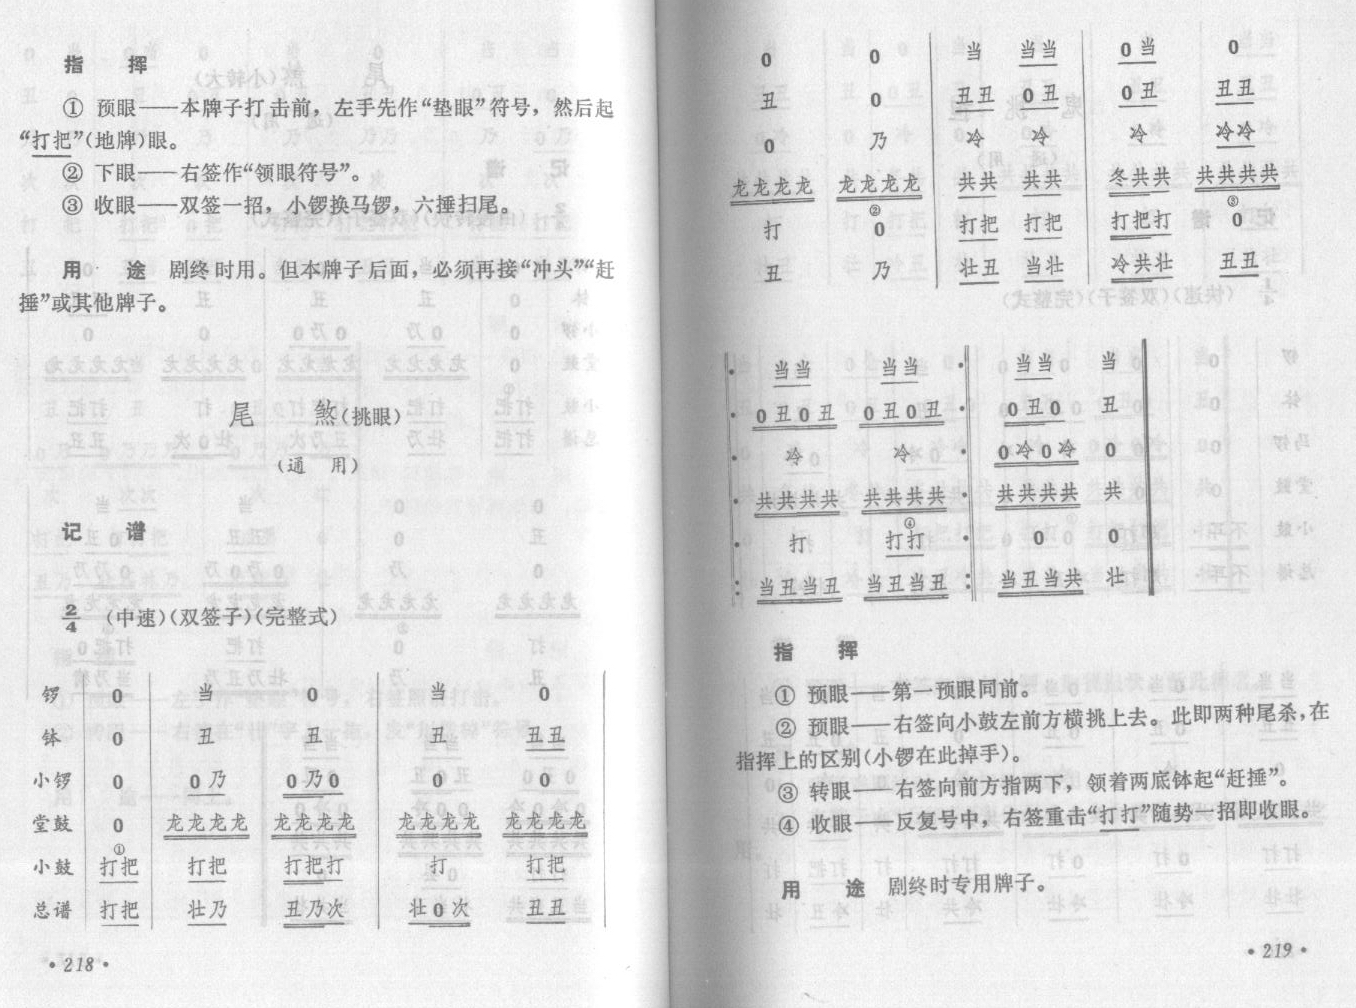 指 挥
① 预眼——本牌子打击前，左手先作“垫眼”符号，然后起
“打把”(地牌)眼。
② 下眼——右签作“领眼符号”。
③ 收眼——双签一招，小锣换马锣，六捶扫尾。
用 途 剧终时用。但本牌子后面，必须再接“冲头”“赶
捶”或其他牌子。
尾 煞(挑眼)
(通 用)
记 谱
2/4 (中速)(双签子)(完整式)
锣 0 当 0 当 0
钵 0 丑 丑 丑 丑丑
小锣 0 0乃 0乃0 0 0
堂鼓 0 龙龙龙龙 龙龙龙龙 龙龙龙龙 龙龙龙龙
①
小鼓 打把 打把 打把打 打 打把
总谱 打把 壮乃 丑乃次 壮0次 丑丑
·218·
0 0 当 当当 0当 0
丑 0 丑丑 0丑 0丑 丑丑
0 乃 冷 冷 冷 冷冷
龙龙龙龙 龙龙龙龙 共共 共共 冬共共 共共共共
② ③
打 0 打把 打把 打把打 0
丑 乃 壮丑 当壮 冷共壮 丑丑
当当 当当 当当 当
0丑0丑 0丑0丑 0丑0 丑
冷 冷 0冷0冷 0
共共共共 共共共共 共共共共 共
④
打 打打 0 0
当丑当丑 当丑当丑 当丑当共 壮
指 挥
① 预眼——第一预眼同前。
② 预眼——右签向小鼓左前方横挑上去。此即两种尾杀，在
指挥上的区别(小锣在此掉手)。
③ 转眼——右签向前方指两下，领着两底钵起“赶捶”。
④ 收眼——反复号中，右签重击“打打”随势一招即收眼。
用 途 剧终时专用牌子。
·219·